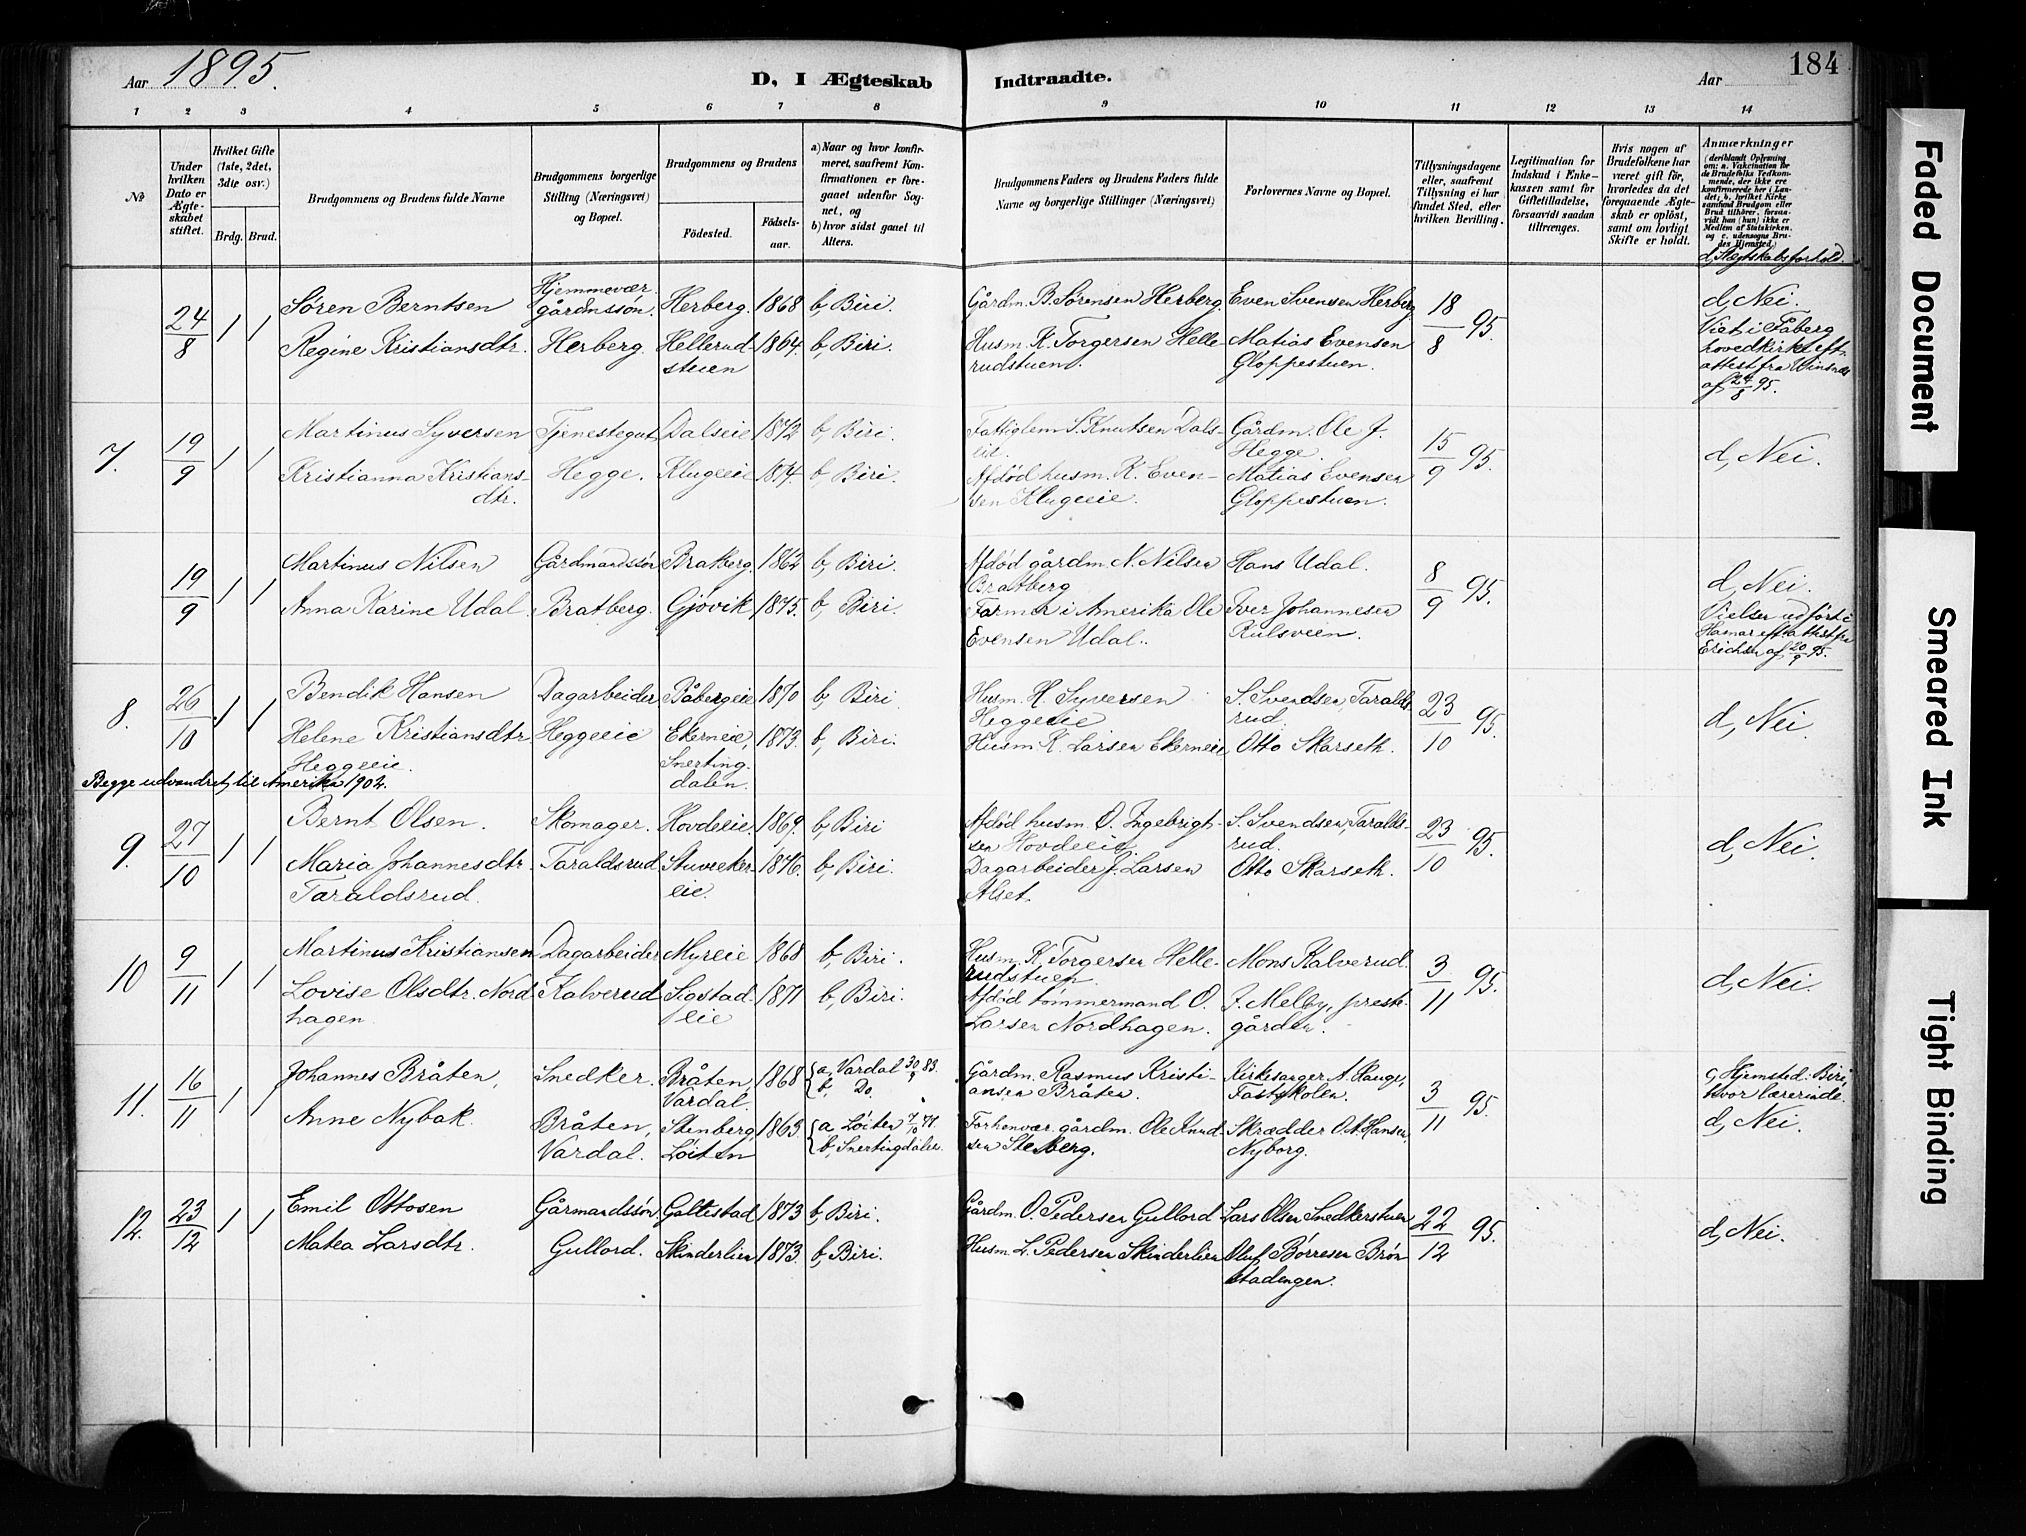 Aar 1895.
D, I Ægteskab Indtraadte.
Aar
184
1 2 3 4 5 6 7 8 9 10 11 12 13 14
No
Under hvilken Dato er Ægteskabet stiftet.
Hvilket Gifte (1ste, 2det, 3die osv.)
Brdg. Brud.
Brudgommens og Brudens fulde Navne
Brudgommens borgerlige Stilling (Næringsvei) og Bopæl.
Brudgommens og Brudens
Fødested. Fødselsaar.
a) Naar og hvor konfirmeret, saafremt Konfirmationen er foregaaet udenfor Sognet, og
b) hvor sidst gaaet til Alters.
Brudgommens Faders og Brudens Faders fulde Navne og borgerlige Stillinger (Næringsvei)
Forlovernes Navne og Bopæl.
Tillysningsdagene eller, saafremt Tillysning ei har fundet Sted, efter hvilken Bevilling.
Legitimation for Indskud i Enkekassen samt for Giftetilladelse, forsaavidt saadan tiltrænges.
Hvis nogen af Brudefolkene har været gift før, hvorledes da det foregaaende Ægteskab er opløst, samt om lovligt Skifte er holdt.
Anmærkninger
(deriblandt Oplysning om: a. Vakcination for de Brudefolks Vedkommende, der ikke ere konfirmerede her i Landet; b. hvilket Kirkesamfund Brudgom eller Brud tilhører, forsaavidt han (hun) ikke er Medlem af Statskirken, og c. udensogns Brudes Hjemsted.)
d, Slegtskabsforhold.
24/8 1 1 Søren Berntsen Hjemmevær. gårdmssøn. Herberg. 1868 b, Biri. Gårdm. B. Sørensen Herberg. Even Svensen Herberg 18/8 95. d, Nei.
Regine Kristiansdtr. Herberg. Hellerudstuen 1864. b, Biri. Husm. K. Torgersen Hellerudstuen. Matias Evensen Gloppestuen.
Viet i Fåberg hovedkirke eft. attest fra Winsnes af 24/8 95.
7. 19/9 1 1 Martinus Syversen Tjenestegut Dalseie 1872 b, Biri. Fattiglem S. Knutsen Dalslil. Gårdm. Ole J. Hegge. 15/9 95. d, Nei.
Kristianna Kristiansdtr. Hegge. Klugeeie 1874. b, Biri. Afdød husm. K. Evensen Klugeeie. Matias Evensen Gloppestuen.
19/9 1 1 Martinus Nilsen Gårdmandssøn Bratberg. 1862 b, Biri. Afdød gårdm. N. Nilsen Bratberg Hans Udal. 8/9 95. d, Nei.
Anna Karine Udal Bratberg. Gjøvik 1875. b, Biri. Farmer i Amerika Ole Evensen Udal. Iver Johannesen Kulsveen.
Vielsen udført i Hamar eft. attest fra Erichsen af 20/9 95.
8. 26/10 1 1 Bendik Hansen Dagarbeider Påbergeie 1870 b, Biri. Husm. H. Syversen Heggeeie S. Svendsen Taraldsrud. 23/10 95. d, Nei.
Helene Kristiansdtr. Heggeeie. Heggeeie Ekerneie, Snertingdalen. 1873. b, Biri. Husm. K. Larsen Ekerneie Otto Skarseth.
Begge udvandret til Amerika 1902.
9. 27/10 1 1 Bernt Olsen. Skomager. Hovdeeie. 1869. b, Biri Afdød husm. O. Ingebrigtsen Hovdeeie S. Svendsen, Taraldsrud. 23/10 95. d, Nei.
Maria Johannesdtr. Taraldsrud. Taraldsrud Stuvekereie. 1876. b, Biri. Dagarbeider J. Larsen Alset. Otto Skarseth.
10 9/11 1 1 Martinus Kristiansen Dagarbeider Myreie 1868 b, Biri. Husm. K. Torgersen Hellerudstuen. Mons Kalverud. 3/11 95. d, Nei.
Lovise Olsdtr. Nordhagen. Kalverud Sigstadeie 1871 b, Biri. Afdød tømmermand O. Larsen Nordhagen. J. Melby, prestegården.
11. 16/11 1 1 Johannes Bråten, Snedker. Bråten, Vardal. 1868 a, Vardal 30/9 83. b, Do. Gårdm. Rasmus Kristiansen Bråten. Kirkesanger A. Hauge, Fastskolen. 3/11 95. c, Hjemsted: Biri, hvor lærerinde.
Anne Nybak. Bråten, Vardal. Stenberg, Løiten 1863. a, Løiten 7/10 77. b, Snertingdalen. Forhenvær. gårdm. Ole Knudsen Stenberg. Skrædder O. A. Hansen Nyborg. d, Nei.
12. 23/12 1 1 Emil Ottosen Gårmandssøn Galtestad 1873 b, Biri. Gårdm. O. Pedersen Gullord Lars Olsen Snedkerstuen 22/12 95. d, Nei.
Matea Larsdtr. Gullord. Skinderlien 1873. b, Biri. Husm. L. Pedersen Skinderlien Oluf Børresen Brønstadengen.
Faded Document
Smeared Ink
Tight Binding